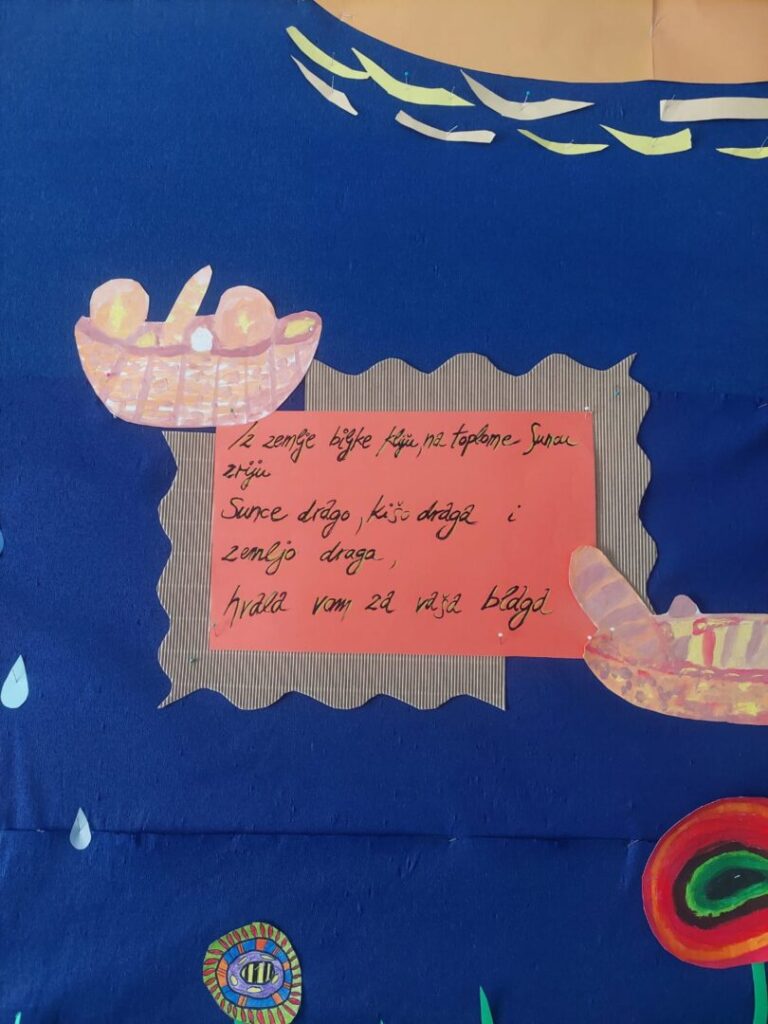 Iz zemlje biljke kliju, na toplome Suncu
zriju
Sunce drago, kišo draga i
zemljo draga,
hvala vam za vaša blaga